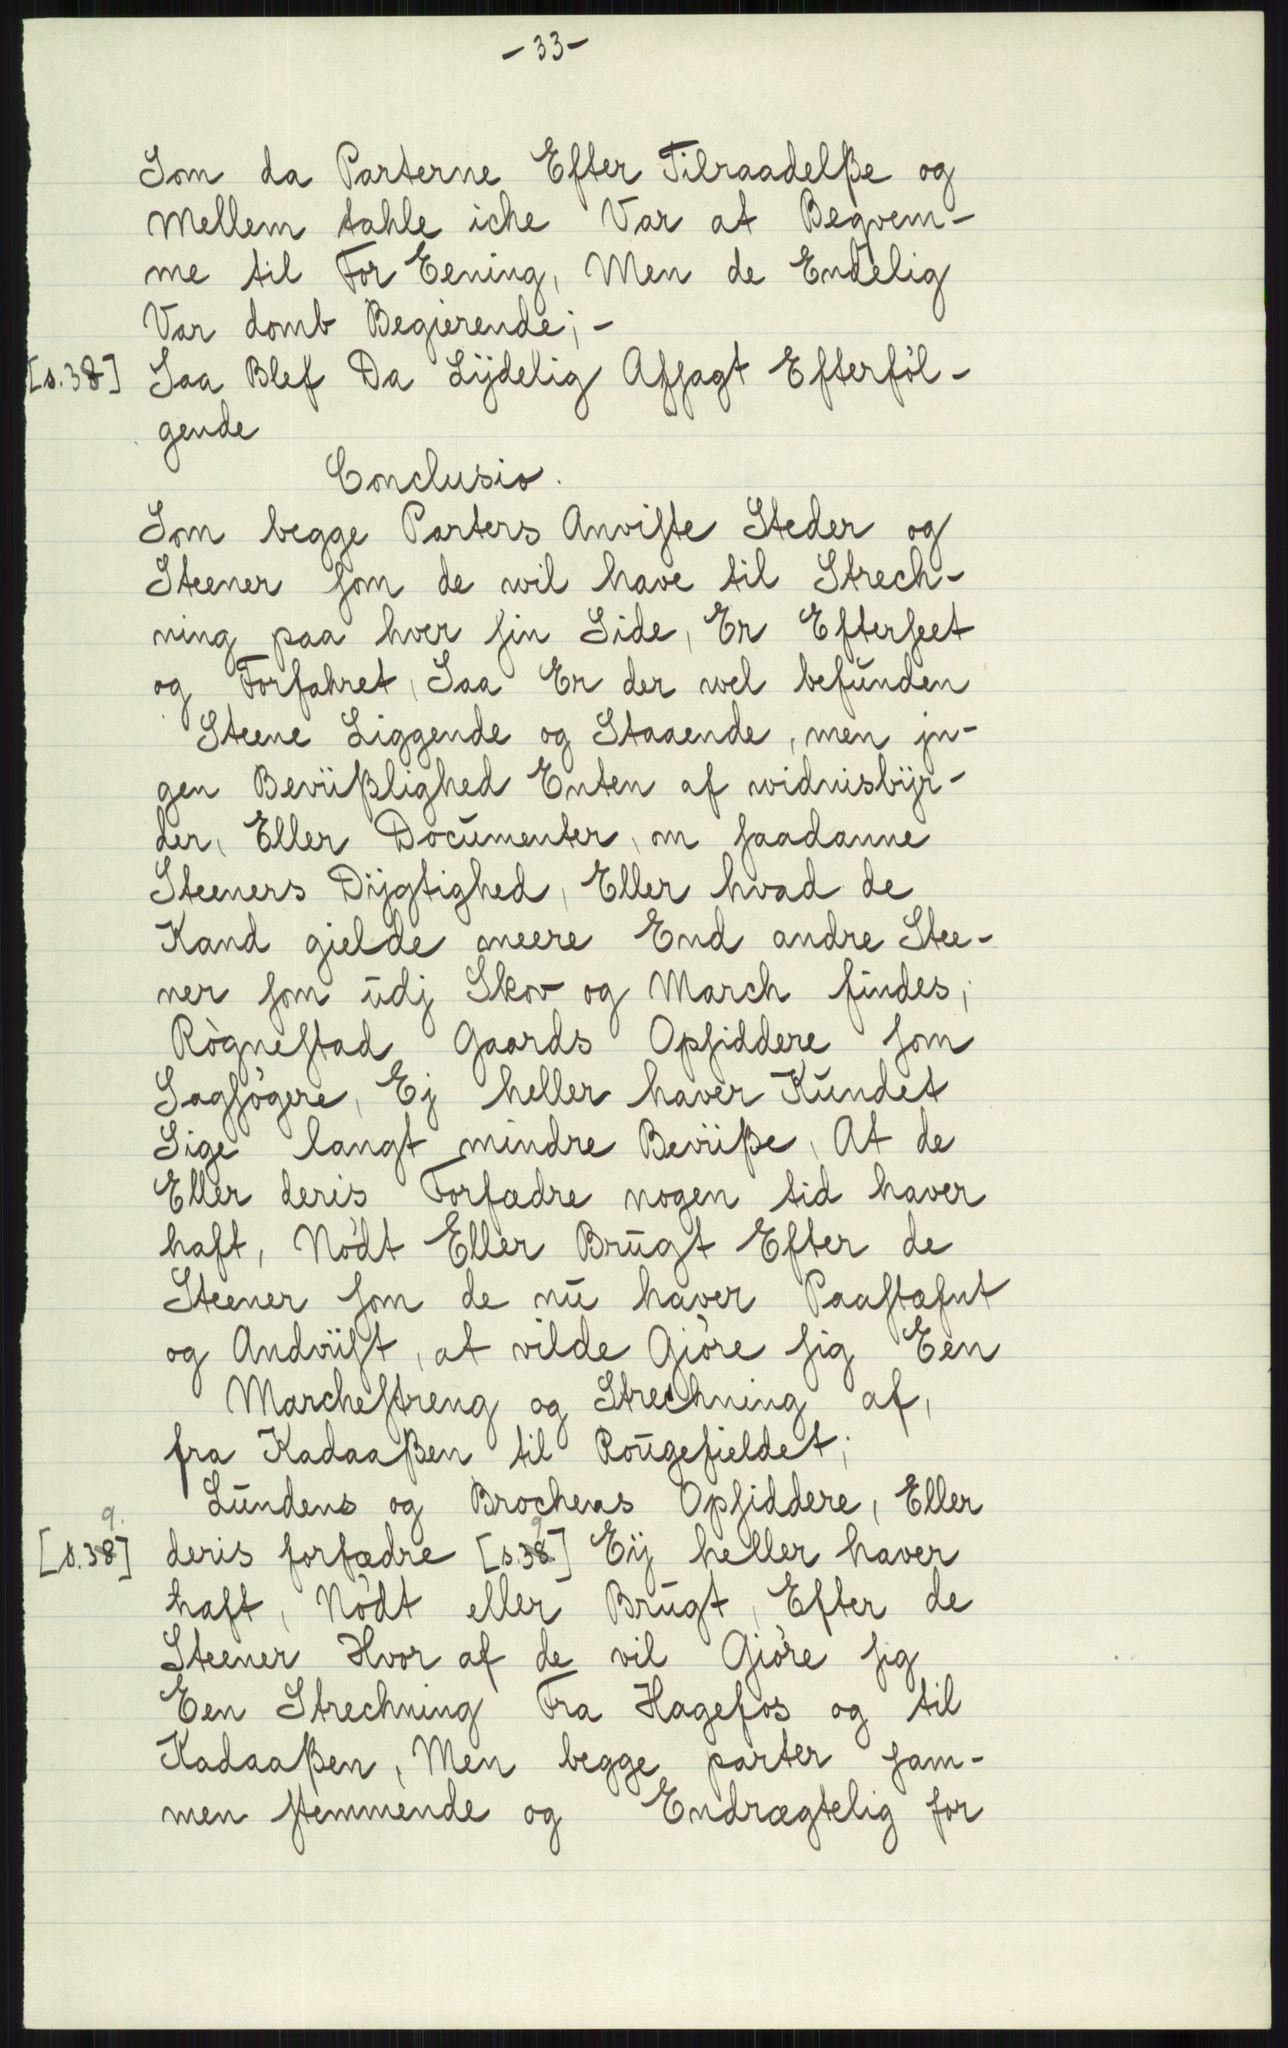 - 33 -
Som da Parterne Efter Tilraadelße og
Mellem tahle iche Var at Beqvem-
me til For Eening, Men de Endelig
Var domb Begierende; -
[s.38] Saa Blef Da Lÿdelig Afsagt Efterføl-
gende
Conclusio.
Som begge Parters Anviste Steder og
Steener som de wil have til Strech-
ning paa hver sin Side, Er Efterseet
og Forfahret, Saa Er der wel befunden
Steene Liggende og Staaende, men jn-
gen Beviißlighed Enten af widnisbÿr-
der, Eller Documenter, om saadanne
Steeners Dÿgtighed, Eller hvad de
Kand gielde meere End andre Stee-
ner som udj Skov og March findes;
Røgnestad Gaards Opsiddere som
Sagsøgere, Ej heller haver Kundet
Sige langt mindre Beviiße, At de
Eller deris Forfædre nogen tid haver
haft, Nødt Eller Brugt Efter de
Steener som de nu haver Paastæfnt
og Andviist, at vilde Giøre sig Een
Marchestreng og Strechning af,
fra Kadaaßen til Rougefieldet;
Lundens og Brochens Opsiddere, Eller
[s.38] 9. deris forfædre [s.38] 9 Eÿ heller haver
haft, Nødt eller Brugt, Efter de
Steener Hvor af de vil Giøre sig
Een Strechning Fra Hagefos og til
Kadaaßen, Men begge parter sam-
men stemmende og Endrægtelig for